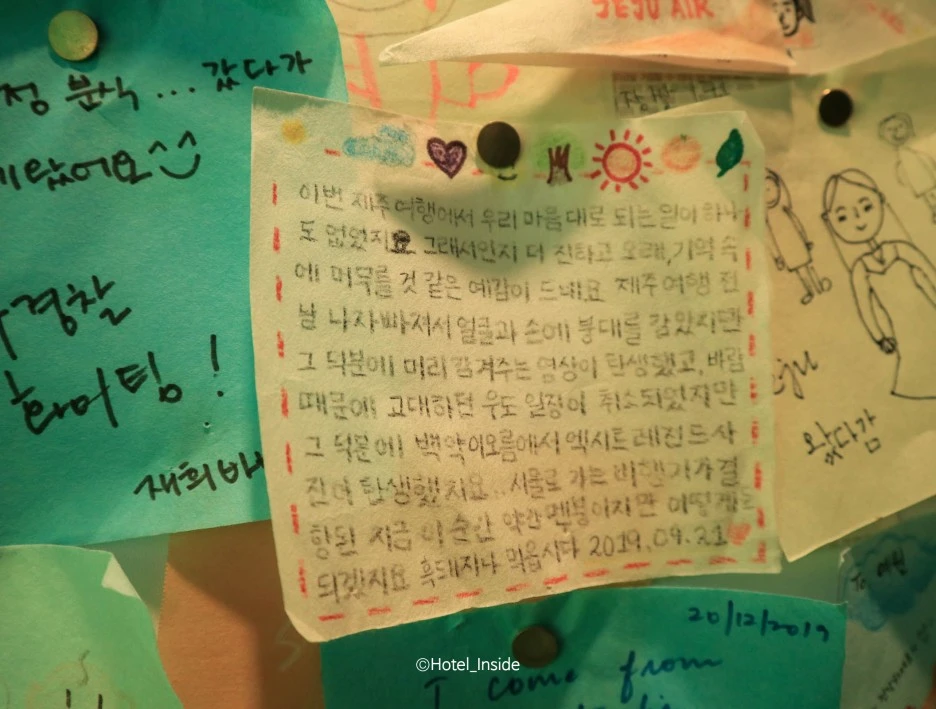 JEJU AIR
정 분식 ... 갔다가
왔어요^^
경찰
화이팅!
이번 제주여행에서 우리 마음대로 되는 일이 하나
도 없었지요 그래서인지 더 진하고 오래, 기억 속
에 머무를 것 같은 예감이 드네요 제주여행 전
날 나자빠져서 얼굴과 손에 붕대를 감았지만
그 덕분에 머리감겨주는 영상이 탄생했고, 바람
때문에 고대하던 우도 일정이 취소되었지만
그 덕분에 백약이오름에서 엑시트 레전드 사
진이 탄생했지요.. 서울로 가는 비행기가 결
항된 지금 이 순간 약간 멘붕이지만 어떻게든
되겠지요 흑돼지나 먹읍시다 2019.09.21
왔다감
20/12/2019
I come from
To
©Hotel_Inside